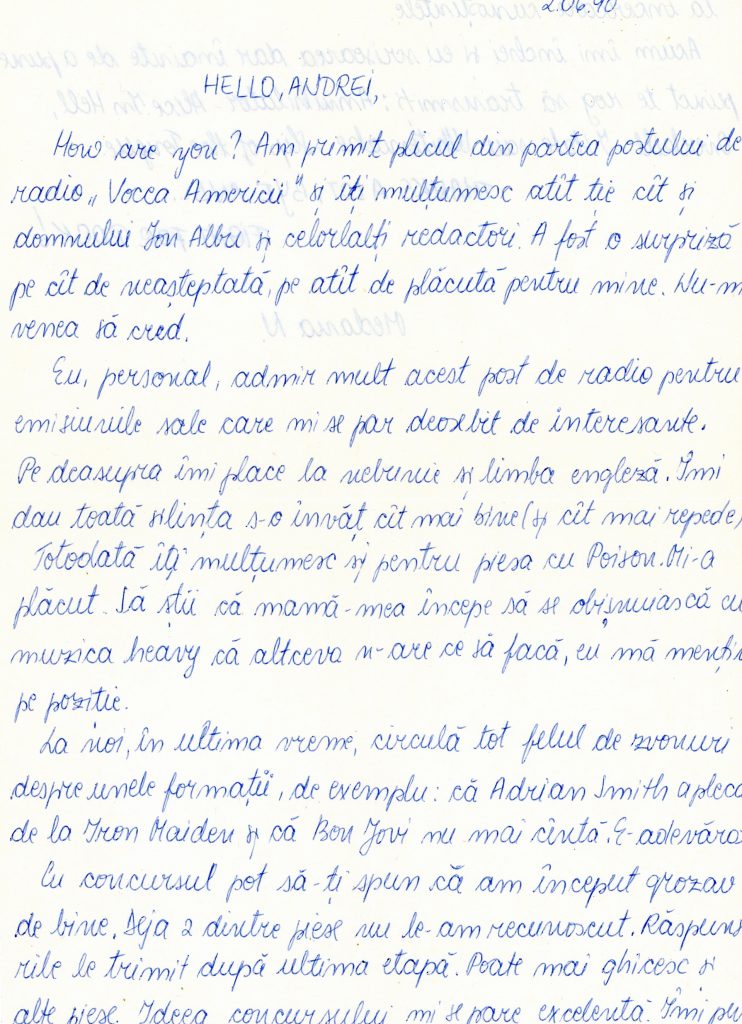 2.06.90
HELLO, ANDREI,
How are you? Am primit plicul din partea postului de
radio „Vocea Americii" și îți mulțumesc atît ție cît și
domnului Jon Albu și celorlalți redactori. A fost o surpriză
pe cît de neașteptată, pe atît de plăcută pentru mine. Nu-m
venea să cred.
Eu, personal, admir mult acest post de radio pentru
emisiunile sale care mi se par deosebit de interesante.
Pe deasupra îmi place la nebunie și limba engleză. Îmi
dau toată silința s-o învăț cît mai bine (și cît mai repede)
Totodată îți mulțumesc și pentru piesa cu Poison. Mi-a
plăcut. Să știi că mamă-mea începe să se obișnuiască cu
muzica heavy că altceva n-are ce să facă, eu mă mențin
pe poziție.
La noi, în ultima vreme, circulă tot felul de zvonuri
despre unele formații, de exemplu: că Adrian Smith a pleca
de la Iron Maiden și că Bon Jovi nu mai cîntă. E-adevăra
Cu concursul pot să-ți spun că am început grozav
de bine. Deja 2 dintre piese nu le-am recunoscut. Răspuns
rile le trimit după ultima etapă. Poate mai ghicesc și
alte piese. Ideea concursului mi se pare excelentă. Îmi